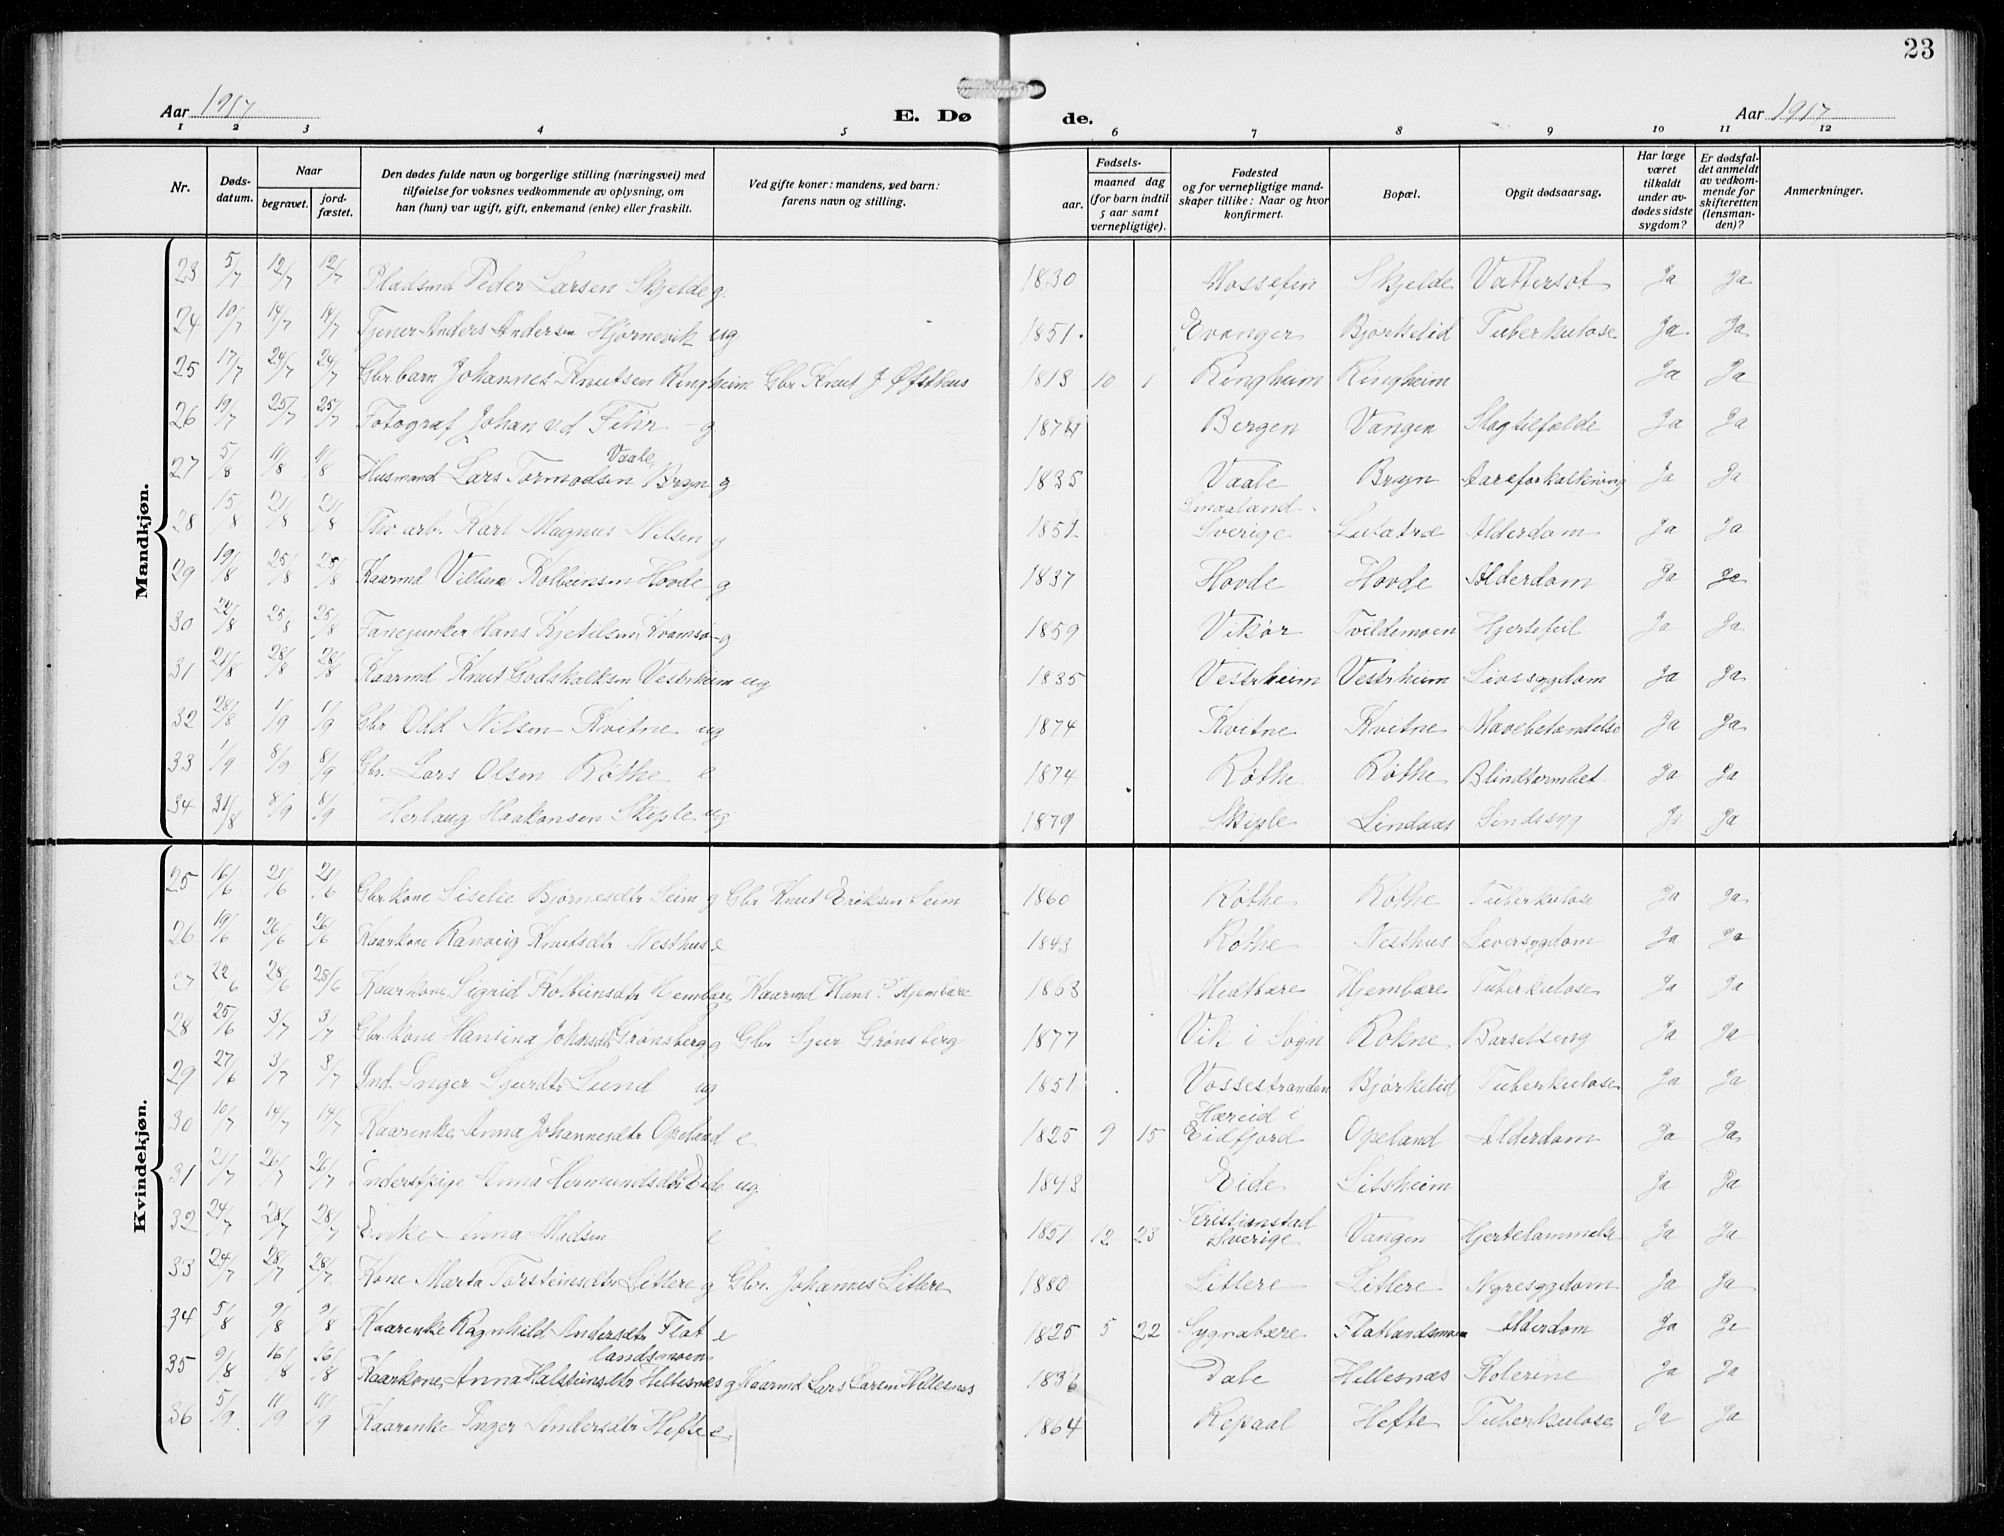 23
Aar 1917
E. Dø de.
Aar 1917
1 2 3 4 5 6 7 8 9 10 11 12
Nr.
Døds-
datum.
Naar
begravet.
jord-
fæstet.
Den dødes fulde navn og borgerlige stilling (næringsvei) med
tilføielse for voksnes vedkommende av oplysning, om
han (hun) var ugift, gift, enkemand (enke) eller fraskilt.
Ved gifte koner: mandens, ved barn:
farens navn og stilling.
Fødsels-
aar.
maaned dag
(for barn indtil
5 aar samt
vernepligtige).
Fødested
og for vernepligtige mand-
skaper tillike: Naar og hvor
konfirmert.
Bopæl.
Opgit dødsaarsag.
Har læge
været
tilkaldt
under av-
dødes sidste
sygdom?
Er dødsfal-
det anmeldt
av vedkom-
mende for
skifteretten
(lensman-
den)?
Anmerkninger.
Mandkjøn.
23 5/7 12/7 12/7 Pladsmd Peder Larsen Skjelde g. 1830 Skjelde Vattersot Ja Ja
24 10/7 14/7 14/7 Tjener Anders Andersen Hjørnevik ug 1851. Evanger Bjørkelid Tuberkulose Ja Ja
25 17/7 24/7 24/7 Gbr barn Johannes Knutsen Ringheim Gbr Knut J Øfsthus 1913 10 1 Ringheim Ringheim Ja Ja
26 19/7 25/7 25/7 Fotograf Johan v.d Fehr g 1874 Bergen Vangen Slagtilfælde Ja Ja
27 5/8 11/8 11/8 Husmand Lars Tormodsen Vaale Bryn g 1835 Vaale Bryn Aareforkalkning Ja Ja
28 15/8 21/8 21/8 arb. Karl Magnus Nilsen g 1851 Sverige Lutatræ Alderdom Ja Ja
29 19/8 25/8 25/8 Kaarmd Villum Kolbeinsen Hovde g 1837 Hovde Hovde Alderdom Ja Ja
30 22/8 25/8 25/8 Fanejunker Hans Kjetilsen Kvamsø g 1859 Vikør Tvildemoen Hjertefeil Ja Ja
31 21/8 28/8 28/8 Kaarmd Knut Godskalksen Vestrheim ug 1835 Vestrheim Vestrheim Livssygdom Ja Ja
32 28/8 1/9 1/9 Gbr. Odd Nilsen Kvitne ug 1874 Kvitne Kvitne Mavebetændelse Ja Ja
33 1/9 8/9 8/9 Gbr. Lars Olsen Røthe e 1874 Røthe Røthe Blindtarmbet. Ja Ja
34 31/8 8/9 8/9 Herlaug Haakonsen Skiple ug 1879 Skiple Lindaas Sindssyg Ja Ja
Kvindekjøn.
25 16/6 21/6 21/6 Gbr kone Siselie Bjørnesdtr Seim g Gbr Knut Eriksen Seim 1860 Røthe Røthe Tuberkulose Ja Ja
26 19/6 26/6 26/6 Kaarkone Ranveig Knutsdtr Nesthus e 1843 Røthe Nesthus Leversygdom Ja Ja
27 22/6 28/6 28/6 Kaarkone Sigrid Kolbeinsdtr Hjembære g Kaarmd Hans P Hjembære 1863 Miatbære Hjembære Tuberkulose Ja Ja
28 25/6 3/7 3/7 Gbr. kone Hansina Johansdtr Grønsberg g Gbr Sjur Grønsberg 1877 Vik i Sogn Rokne Barselseng Ja Ja
29 27/6 3/7 3/7 Ind. Inger Sjurdtr Lund ug 1851 Vossestranden Bjørkelid Tuberkulose Ja Ja
30 10/7 14/7 14/7 Kaarenke Anna Johannesdtr Opeland e 1825 9 15 Hæreid i Eidfjord Opeland Alderdom Ja Ja
31 21/7 26/7 26/7 Inderstpige Anna Hermundsdtr Eide ug. 1843 Eide Litsheim Ja Ja
32 24/7 28/7 28/7 Enke Anna Madsen e 1851 12 23 Kristianstad Sverige Vangen Hjertelammelse Ja Ja
33 24/7 28/7 28/7 Kone Marta Torsteinsdtr Litlere g Gbr. Johannes Litlere 1880 Litlere Litlere Nyresygdom Ja Ja
34 5/8 9/8 9/8 Kaarenke Ragnhild Andersdtr Flat landsmoen e 1825 5 22 Sygnabære Flatlandsmoen Alderdom Ja Ja
35 9/8 16/8 16/8 Kaarkone Anna Halsteinsdtr Hellesnæs g Kaarmd Lars Larsen Hellesnæs 1836 Dale Hellesnæs Kolerine Ja Ja
36 5/9 11/9 11/9 Kaarenke Inger Andersdtr Hefte e. 1864 Repaal Hefte Tuberkulose Ja Ja